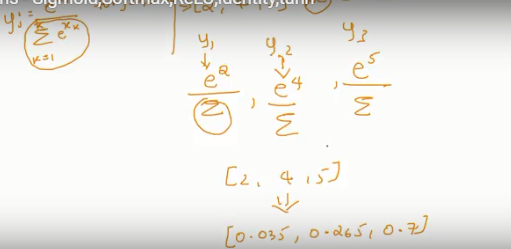 ns - Sigmoid,Softmax,ReLU,Identity,tanh
y_j = e / Σ_{k=1}^{k} e^{x_k}
y_1 y_2 y_3
e^2/Σ , e^4/Σ , e^5/Σ
[2, 4, 5]
⇓
[0.035, 0.265, 0.7]